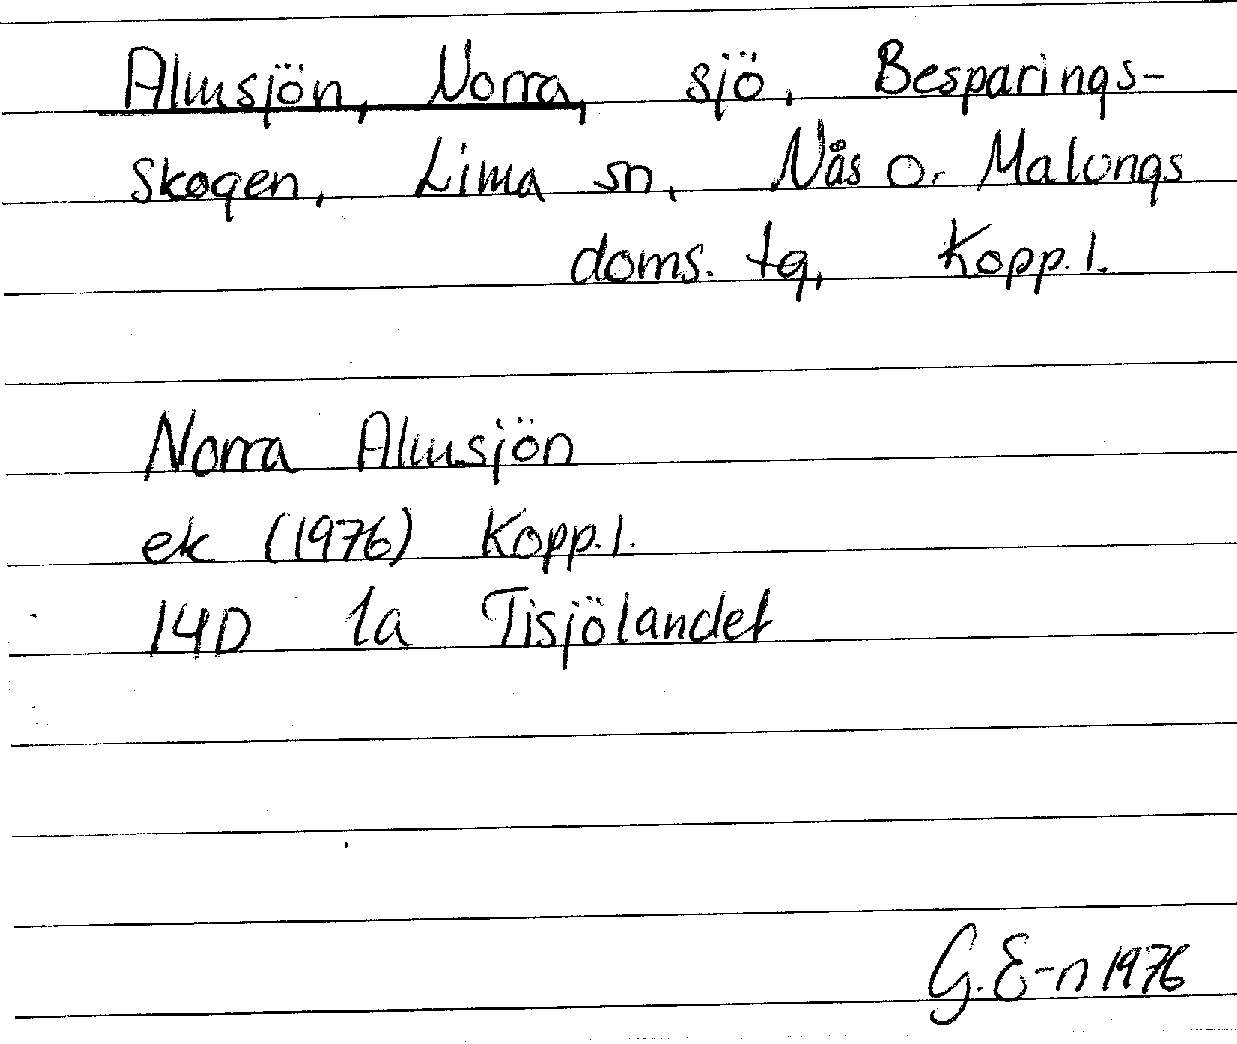 Almsjön, Norra, sjö, Besparings-
skogen, Lima sn, Nås o. Malungs
doms. tg, Kopp. l.
Norra Almsjön
ek (1976) Kopp. l.
14D 1a Tisjölandet
G. E-n 1976